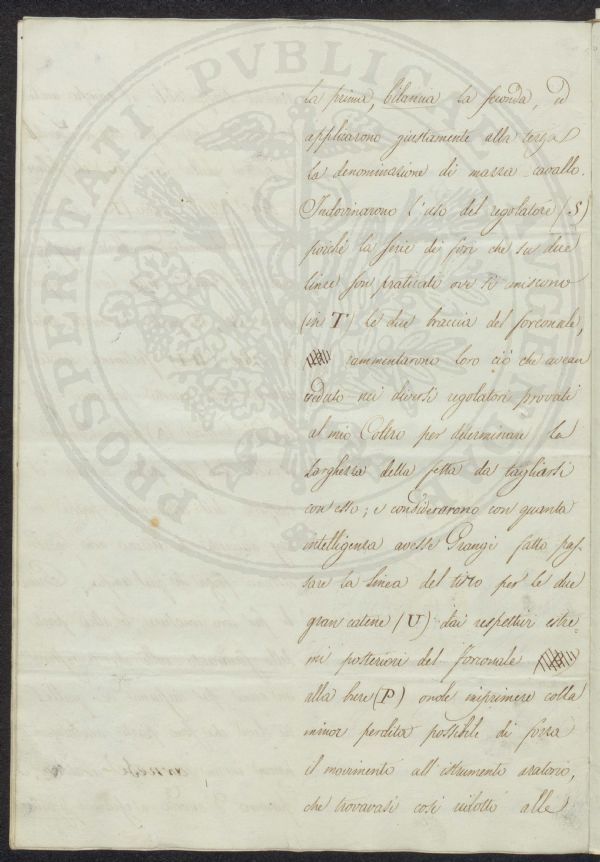 la prima, bilancia la seconda, ed
applicarono giustamente alla terza
la denominazione di mazza-cavallo.
Indovinarono l'uso del regolatore (S)
poichè la serie di fori che su due
linee son praticati ove si uniscono
(in T) le due braccia del forconale,
rammentarono loro ciò che avean
veduto nei diversi regolatori provati
al mio Coltro per determinare la
larghezza della fetta da tagliarsi
con esso; e considerarono con quanta
intelligenza avesse Grangé fatto pas-
sare la linea del tiro per le due
gran catene (U) dai respettivi estre-
mi posteriori del forconale
alla bure (P) onde imprimere colla
minor perdita possibile di forza
il movimento all'istrumento aratorio,
che trovavasi così ridotto alle
PROSPERITATI PVBLICAE AVGENDAE